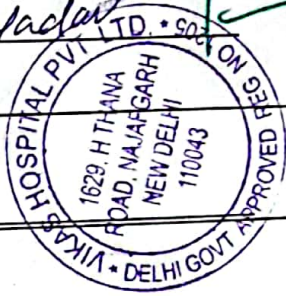 yadav
VIKAS HOSPITAL PVT LTD. * DELHI GOVT APPROVED REG NO 205 *
1629, H THANA
ROAD, NAJAFGARH
NEW DELHI
110043